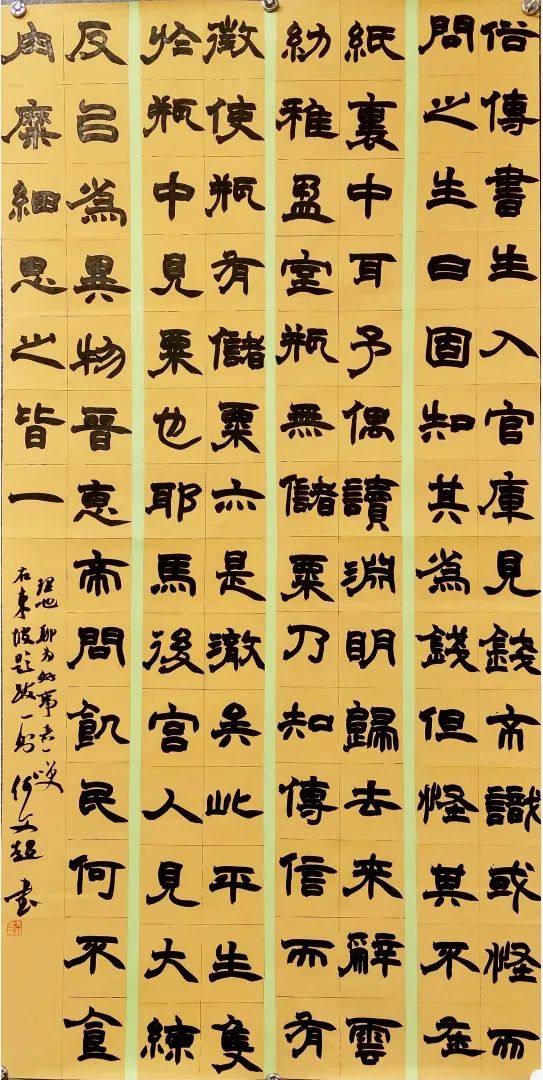 俗傳書生入官庫見錢不識或怪而
問之生曰固知其爲錢但怪其不在
紙裏中耳予偶讀淵明歸去來辭雲
幼稚盈室瓶無儲粟乃知傳信而有
徵使瓶有儲粟亦是澈矣此平生隻
於瓶中見粟也耶馬後宮人見大練
反以爲異物晉惠帝問飢民何不食
肉糜細思之皆一
理也聊為好事者一笑
右東坡題跋一則 何文超書